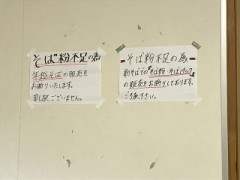 そば粉不足の為
年越そばの販売を
お断りいたします。
申し訳ございません。
そば粉不足の為
の販売をお断りしております。
ご了承下さい。